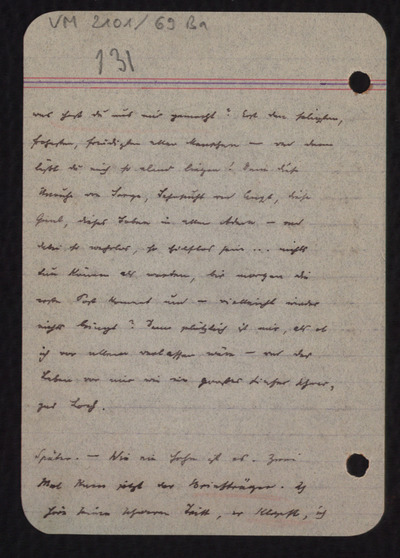 VM 2101/69 Ba
131
was hast du aus mir gemacht? Erst den seligsten,
frohesten, freudigsten aller Menschen — und dann
läßt du mich so elend liegen! Denn diese
Unruhe von Sorge, Sehnsucht und Angst, diese
Qual, dieses Beben in allen Adern — und
dabei so wehrlos, so hilflos sein ... nichts
tun können als warten, bis morgen die
erste Post kommt und — vielleicht wieder
nichts bringt? Denn plötzlich ist mir, als ob
ich von allem verlassen wäre — und das
Leben vor mir wie ein großes tiefes schwar-
zes Loch.
Später. — Wie ein Hohn ist es. Zwei
Mal kam jetzt der Briefträger. Ich
höre seinen schweren Tritt, er klopft, ich